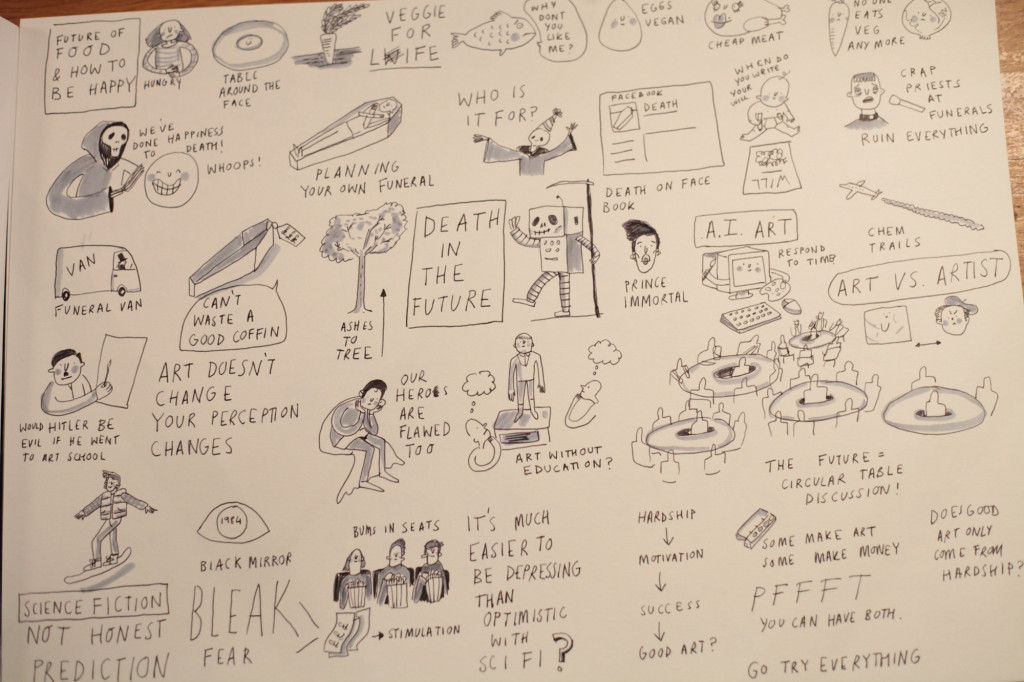 FUTURE OF
FOOD
& HOW TO
BE HAPPY
HUNGRY
TABLE
AROUND THE
FACE
VEGGIE
FOR
LIFE
WHY
DONT
YOU
LIKE
ME?
EGGS
VEGAN
CHEAP MEAT
NO ONE
EATS
VEG
ANY MORE
WE'VE
DONE HAPPINESS
TO DEATH!
WHOOPS!
PLANNING
YOUR OWN FUNERAL
WHO IS
IT FOR?
FACEBOOK
DEATH
DEATH ON FACE
BOOK
WHEN DO
YOU WRITE
YOUR
WILL
WILL
CRAP
PRIESTS
AT
FUNERALS
RUIN EVERYTHING
VAN
FUNERAL VAN
CAN'T
WASTE A
GOOD COFFIN
ASHES
TO
TREE
DEATH
IN
THE
FUTURE
PRINCE
IMMORTAL
A.I. ART
RESPOND
TO TIME?
CHEM
TRAILS
ART VS. ARTIST
WOULD HITLER BE
EVIL IF HE WENT
TO ART SCHOOL
ART DOESN'T
CHANGE
YOUR PERCEPTION
CHANGES
OUR
HEROES
ARE
FLAWED
TOO
ART WITHOUT
EDUCATION?
THE FUTURE =
CIRCULAR TABLE
DISCUSSION!
SCIENCE FICTION
NOT HONEST
PREDICTION
1984
BLACK MIRROR
BLEAK
FEAR
BUMS IN SEATS
£££
→ STIMULATION
IT'S MUCH
EASIER TO
BE DEPRESSING
THAN
OPTIMISTIC
WITH
SCI FI ?
HARDSHIP
↓
MOTIVATION
↓
SUCCESS
↓
GOOD ART?
SOME MAKE ART
SOME MAKE MONEY
PFFFT
YOU CAN HAVE BOTH.
GO TRY EVERYTHING
DOES GOOD
ART ONLY
COME FROM
HARDSHIP?